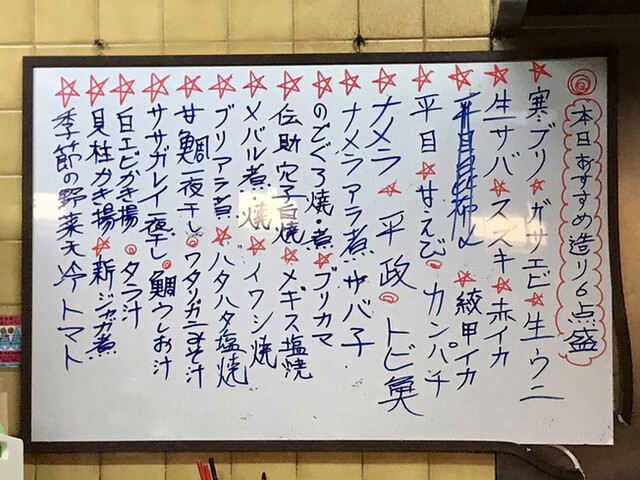 ◎本日おすすめ造り6点盛
☆寒ブリ☆ガサエビ☆生ウニ
☆生サバ☆スズキ☆赤イカ
☆紋甲イカ
☆平目☆甘えび◎カンパチ
☆ナメラ☆平政◎トビ魚
☆ナメラアラ煮☆サバ子
☆のどぐろ焼・煮☆ブリカマ
☆伝助穴子白焼☆メギス塩焼
☆メバル煮・焼☆イワシ焼
☆ブリアラ煮☆ハタハタ塩焼
☆甘鯛一夜干し◎ワタリガニみそ汁
☆ササガレイ一夜干し◎鯛ウしお汁
☆白エビかき揚◎タラ汁
☆貝柱かき揚☆新ジャガ煮
☆季節の野菜天 冷トマト